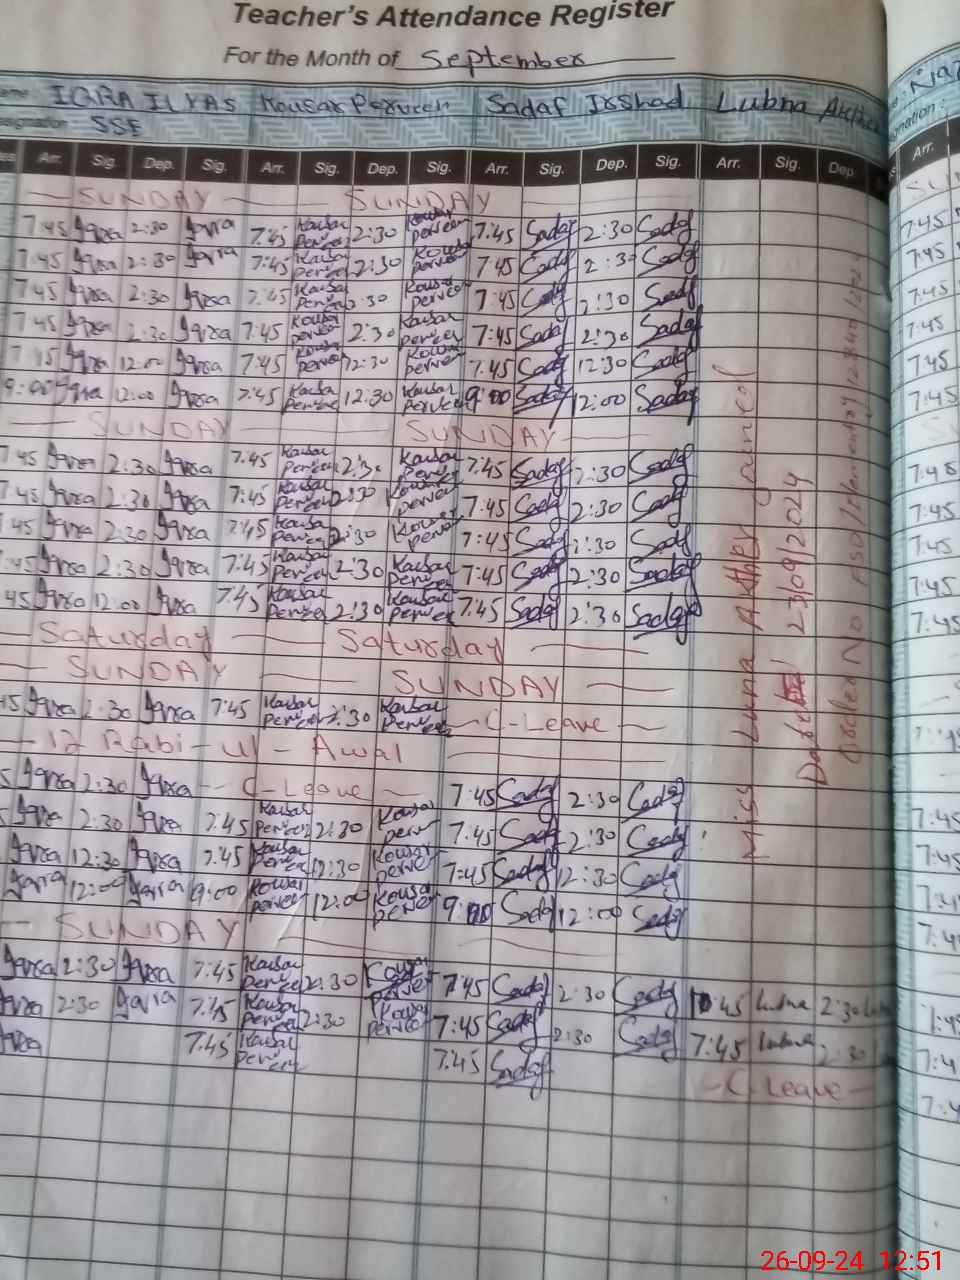 Teacher's Attendance Register
For the Month of September
IQRA ILYAS Kousar Perveen Sadaf Irshad Lubna Akhter
SSE
Arr. Sig. Dep. Sig. Arr. Sig. Dep. Sig. Arr. Sig. Dep. Sig. Arr. Sig. Dep. Arr.
SUNDAY SUNDAY
7:45 Iqra 2:30 Iqra 7:45 Kousar Perveen 2:30 Kousar Perveen 7:45 Sadaf 2:30 Sadaf 7:45
7:45 Iqra 2:30 Iqra 7:45 Kausar Perveen 2:30 Kousar Perveen 7:45 Sadaf 2:30 Sadaf 7:45
7:45 Iqra 2:30 Iqra 7:45 Kausar Perveen 2:30 Kousar Perveen 7:45 Sadaf 2:30 Sadaf 7:45
7:45 Iqra 2:30 Iqra 7:45 Kousar Perveen 2:30 Kausar Perveen 7:45 Sadaf 2:30 Sadaf 7:45
7:45 Iqra 12:00 Iqra 7:45 Kousar Perveen 12:30 Kousar Perveen 7:45 Sadaf 12:30 Sadaf 7:45
9:00 Iqra 12:00 Iqra 7:45 Kausar Perveen 12:30 Kausar Perveen 9:00 Sadaf 12:00 Sadaf 7:45
SUNDAY SUNDAY
7:45 Iqra 2:30 Iqra 7:45 Kausar Perveen 2:30 Kausar Perveen 7:45 Sadaf 2:30 Sadaf 7:45
7:45 Iqra 2:30 Iqra 7:45 Kausar Perveen 2:30 Kousar Perveen 7:45 Sadaf 2:30 Sadaf 7:45
:45 Iqra 2:30 Iqra 7:45 Kausar Perveen 2:30 Kousar Perveen 7:45 Sadaf 2:30 Sadaf 7:45
:45 Iqra 2:30 Iqra 7:45 Kausar Perveen 2:30 Kausar Perveen 7:45 Sadaf 2:30 Sadaf 7:45
45 Iqra 12:00 Iqra 7:45 Kausar Perveen 2:30 Kausar Perveen 7:45 Sadaf 2:30 Sadaf 7:45
Saturday Saturday
SUNDAY SUNDAY
45 Iqra 2:30 Iqra 7:45 Kausar Perveen 2:30 Kausar Perveen C-Leave
12 Rabi-ul-Awal
5 Iqra 2:30 Iqra C-Leave 7:45 Sadaf 2:30 Sadaf
Iqra 2:30 Iqra 7:45 Kausar Perveen 2:30 Kousar Perveen 7:45 Sadaf 2:30 Sadaf
Iqra 12:30 Iqra 7:45 Kausar Perveen 12:30 Kousar Perveen 7:45 Sadaf 12:30 Sadaf
Iqra 12:00 Iqra 9:00 Kousar Perveen 12:00 Kousar Perveen 9:00 Sadaf 12:00 Sadaf
SUNDAY
Iqra 2:30 Iqra 7:45 Kausar Perveen 2:30 Kousar Perveen 7:45 Sadaf 2:30 Sadaf 45 Lubna 2:30
Iqra 2:30 Iqra 7:45 Kausar Perveen 2:30 Kousar Perveen 7:45 Sadaf 2:30 Sadaf 7:45 Lubna 2:30
Iqra 7:45 Kausar Perveen 7:45 Sadaf C-Leave
Miss Lubna Akhter joined
Dated 23/09/2024
Order No
26-09-24 12:51